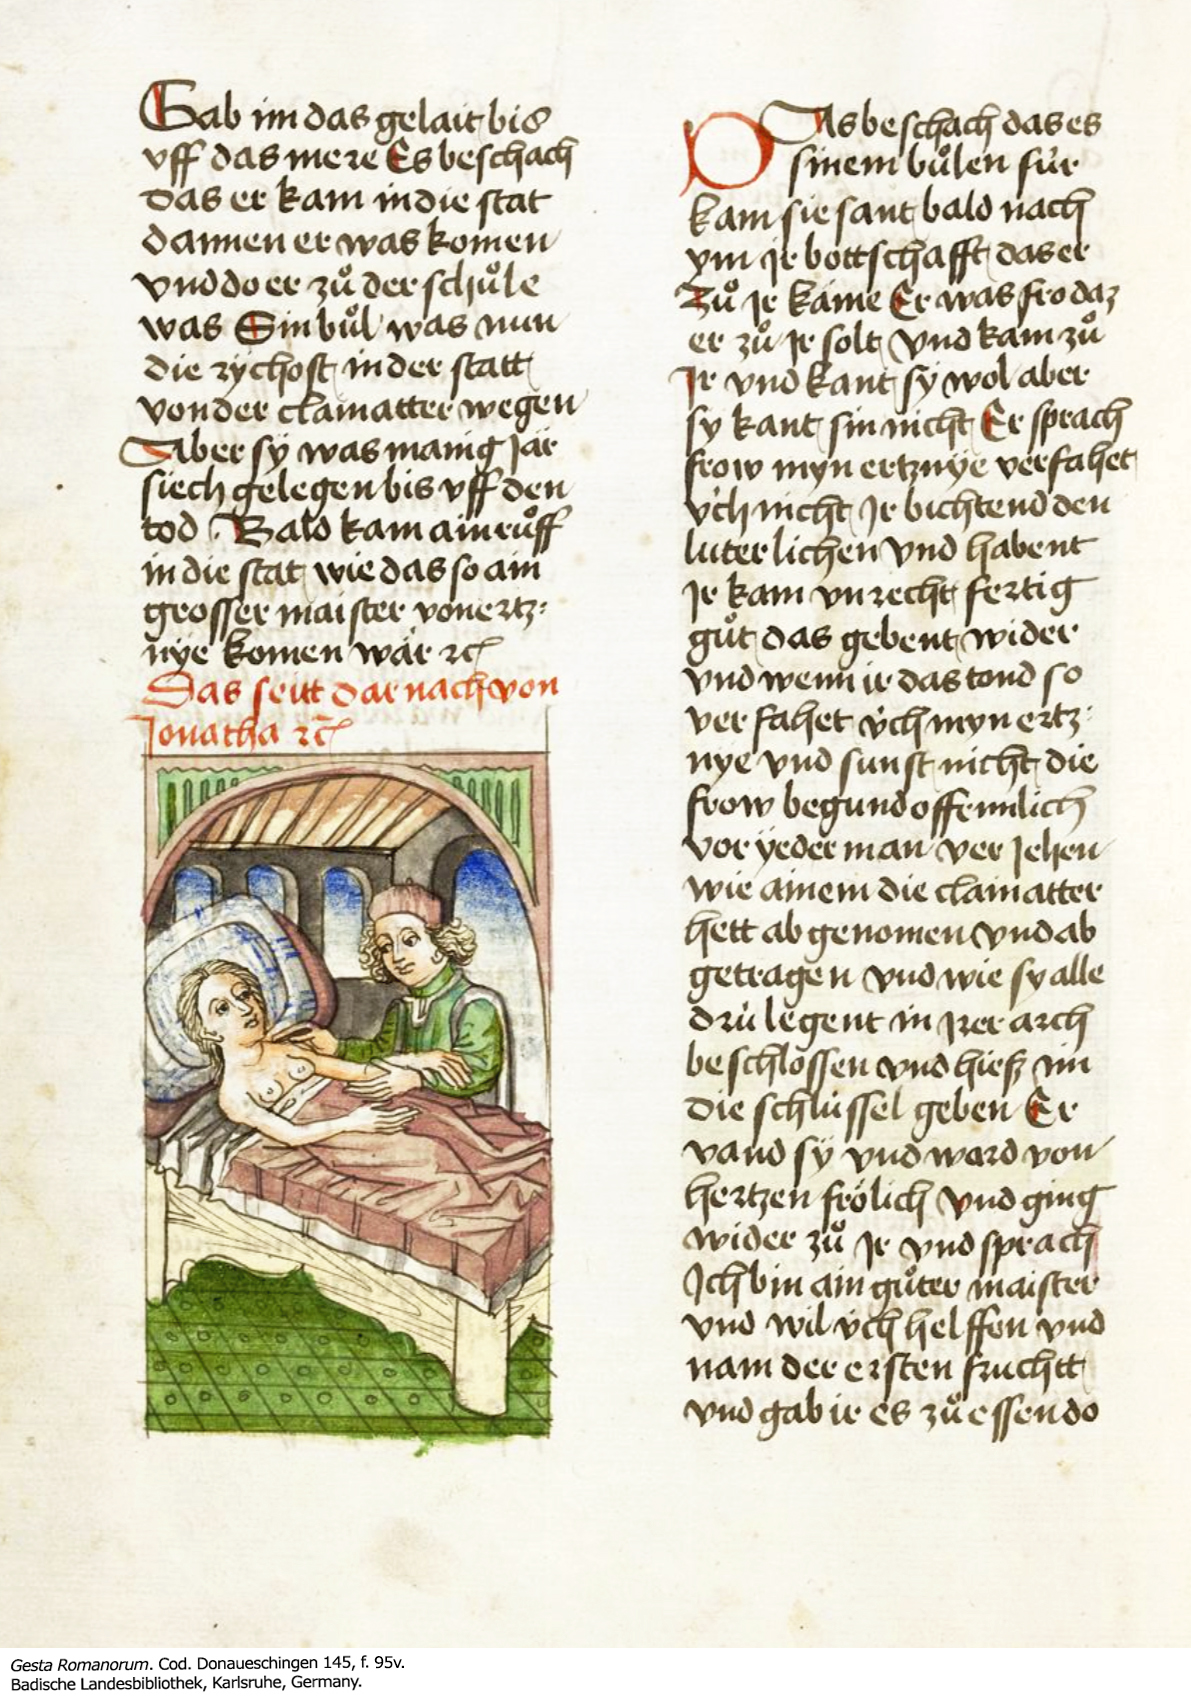 Gab im das gelait bis
vff das mere Es beschach
das er kam in die stat
dannen er was komen
vnd do er zuͦ der schuͦle
was Sin buͦl was nun
die rÿchost in der statt
von der clainatter wegen
Aber sÿ was manig Jar
siech gelegen bis vff den
tod . Bald kam ain ruͦff
in die stat wie das so ain
grosser maister von ertz-
nÿe komen wär ꝛc
Das seitt dar nach von
Jonatha ꝛc
Das beschach das es
sinem buͦlen für
kam sie sant bald nach
ym Jr bottschafft das er
Zuͦ Jr käme Er was fro daz
er zuͦ Jr solt Vnd kam zuͦ
Jr vnd kant sy wol aber
sy kant sin nicht Er sprach
frow myn ertznÿe verfahet
v́ch nicht Jr bichtend den
luterlichen vnd habent
Jr kain vnrecht fertig
guͦt das gebent wider
vnd wenn ir das tond so
verfahet v́ch myn ertz-
nye vnd sunst nicht die
frow begund offennlich
vor ÿederman ver Jehen
wie ainem die clainatter
hett ab genomen vnd ab
getragen vnd wie sy alle
drü legent in Jrer arch
beschlossen vnd hiesz im
die schlüssel geben Er
vand sÿ vnd ward von
hertzen frölich vnd ging
wider zuͦ Jr vnd sprach
Ich bin ain guͦter maister
vnd wil v́ch helffen vnd
nam der ersten fruchtt
vnd gab ir es zuͦ essen do
Gesta Romanorum. Cod. Donaueschingen 145, f. 95v.
Badische Landesbibliothek, Karlsruhe, Germany.